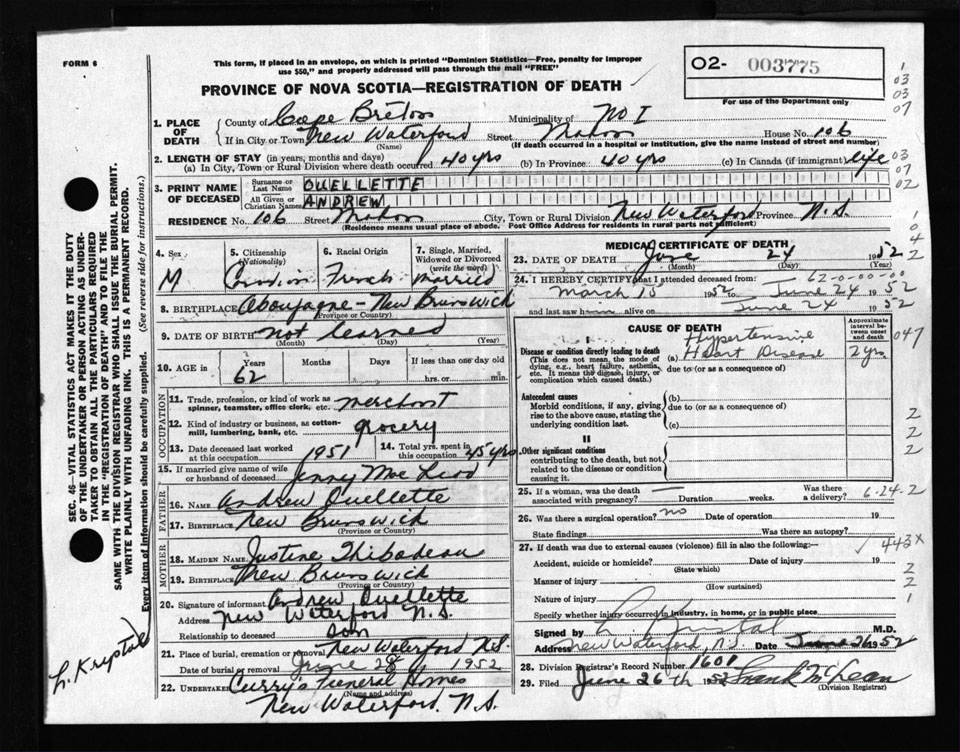 FORM 6
This form, if placed in an envelope, on which is printed "Dominion Statistics—Free, penalty for improper
use $50," and properly addressed will pass through the mail "FREE"
O2- 003775
For use of the Department only
PROVINCE OF NOVA SCOTIA—REGISTRATION OF DEATH
1. PLACE OF DEATH
County of Cape Breton Municipality of No I
If in City or Town New Waterford Street Mahon House No. 106
(Name) (If death occurred in a hospital or institution, give the name instead of street and number)
2. LENGTH OF STAY (in years, months and days)
(a) In City, Town or Rural Division where death occurred 40 yrs (b) In Province 40 yrs (c) In Canada (if immigrant) life
3. PRINT NAME OF DECEASED
Surname or Last Name OUELLETTE
All Given or Christian Names ANDREW
RESIDENCE No. 106 Street Mahon City, Town or Rural Division New Waterford Province N.S.
(Residence means usual place of abode. Post Office Address for residents in rural parts not sufficient)
4. Sex M
5. Citizenship (Nationality) Canadian
6. Racial Origin French
7. Single, Married, Widowed or Divorced (write the word) Married
8. BIRTHPLACE Aboujagne - New Brunswick
(Province or Country)
9. DATE OF BIRTH not learned
(Month) (Day) (Year)
10. AGE in Years 62 Months Days If less than one day old
hrs. or min.
OCCUPATION
11. Trade, profession, or kind of work as
spinner, teamster, office clerk, etc. merchant
12. Kind of industry or business, as cotton-
mill, lumbering, bank, etc. grocery
13. Date deceased last worked at this occupation 1951
14. Total yrs. spent in this occupation 45 yrs
15. If married give name of wife
or husband of deceased Jenny Mac Leod
FATHER
16. NAME Andrew Ouellette
17. BIRTHPLACE New Brunswick
(Province or Country)
MOTHER
18. MAIDEN NAME Justine Thibodeau
19. BIRTHPLACE New Brunswick
(Province or Country)
20. Signature of informant Andrew Ouellette
Address New Waterford N.S.
Relationship to deceased son
21. Place of burial, cremation or removal New Waterford N.S.
Date of burial or removal June 28 1952
22. UNDERTAKER Curry's Funeral Homes
(Name and address)
New Waterford, N.S.
MEDICAL CERTIFICATE OF DEATH
23. DATE OF DEATH June 24 1952
(Month) (Day) (Year)
24. I HEREBY CERTIFY that I attended deceased from: 62-0-00-00
March 15 1952 to June 24 1952
and last saw h alive on June 24 1952
CAUSE OF DEATH
Approximate interval between onset and death
Disease or condition directly leading to death
(This does not mean, the mode of
dying, e.g., heart failure, asthenia,
etc. It means the disease, injury, or
complication which caused death.)
(a) Hypertensive
Heart Disease 2 yrs
due to (or as a consequence of)
Antecedent causes
Morbid conditions, if any, giving
rise to the above cause, stating the
underlying condition last.
(b)
due to (or as a consequence of)
(c)
II
Other significant conditions
contributing to the death, but not
related to the disease or condition
causing it.
25. If a woman, was the death
associated with pregnancy? Duration weeks. Was there a delivery? 6-24-2
26. Was there a surgical operation? no Date of operation 19
State findings Was there an autopsy?
27. If death was due to external causes (violence) fill in also the following:— 443X
Accident, suicide or homicide? Date of injury 19
(State which)
Manner of injury
(How sustained)
Nature of injury
Specify whether injury occurred in industry, in home, or in public place
Signed by L. Kristal M.D.
Address New Waterford, N.S. Date June 26 1952
28. Division Registrar's Record Number 1601
29. Filed June 26th 1952 Frank McLean
(Division Registrar)
SEC. 46—VITAL STATISTICS ACT MAKES IT THE DUTY
OF THE UNDERTAKER OR PERSON ACTING AS UNDER-
TAKER TO OBTAIN ALL THE PARTICULARS REQUIRED
IN THE "REGISTRATION OF DEATH" AND TO FILE THE
SAME WITH THE DIVISION REGISTRAR WHO SHALL ISSUE THE BURIAL PERMIT.
WRITE PLAINLY WITH UNFADING INK. THIS IS A PERMANENT RECORD.
Every item of information should be carefully supplied. (See reverse side for instructions.)
L. Krystal
1
03
03
07
03
07
02
1
0
4
2
2
047
2
2
2
2
2
1